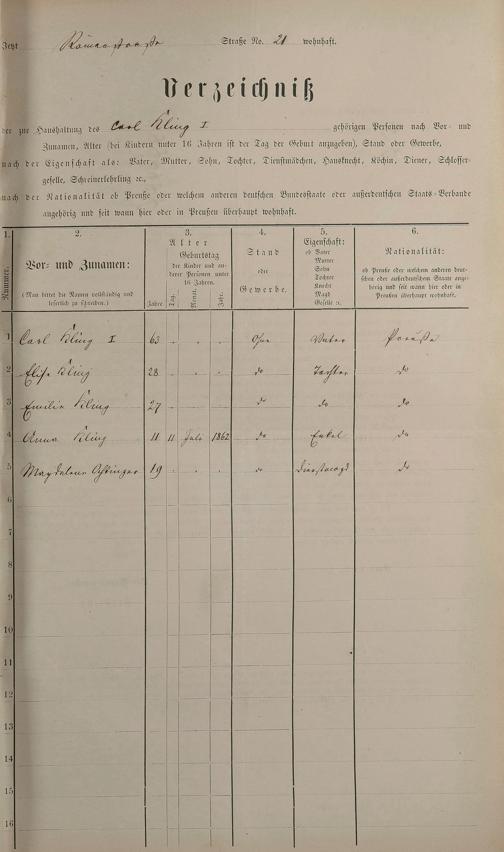 Jetzt Römerstraße Straße No. 21 wohnhaft.
Verzeichniß
der zur Haushaltung des Carl Kling I gehörigen Personen nach Vor- und
Zunamen, Alter (bei Kindern unter 16 Jahren ist der Tag der Geburt anzugeben), Stand oder Gewerbe,
nach der Eigenschaft als: Vater, Mutter, Sohn, Tochter, Dienstmädchen, Hausknecht, Köchin, Diener, Schlosser-
geselle, Schreinerlehrling ꝛc.,
nach der Nationalität ob Preuße oder welchem anderen deutschen Bundesstaate oder außerdeutschen Staats-Verbande
angehörig und seit wann hier oder in Preußen überhaupt wohnhaft.
1. 2. 3. 4. 5. 6.
Nummer.
Vor- und Zunamen:
(Man bittet die Namen vollständig und
leserlich zu schreiben.)
Alter
Geburtstag
der Kinder und an-
derer Personen unter
16 Jahren.
Jahre Tag. Monat. Jahr.
Stand
oder
Gewerbe.
Eigenschaft:
ob Vater
Mutter
Sohn
Tochter
Knecht
Magd
Geselle ꝛc.
Nationalität:
ob Preuße oder welchem anderen deut-
schen oder außerdeutschen Staate ange-
hörig und seit wann hier oder in
Preußen überhaupt wohnhaft.
1 Carl Kling I 63 - - - Ohne Vater Preuße
2 Elise Kling 28 - - - do Tochter do
3 Emilie Kling 27 - - - do do do
4 Anna Kling 11 11 Juli 1862 do Enkel do
5 Magdalena 19 - - - do Dienstmagd do
6
7
8
9
10
11
12
13
14
15
16